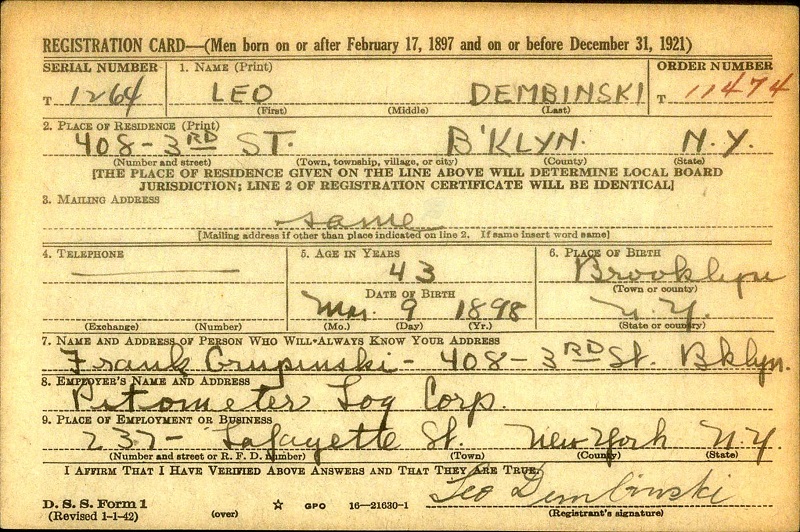 REGISTRATION CARD—(Men born on or after February 17, 1897 and on or before December 31, 1921)
SERIAL NUMBER 1. NAME (Print) ORDER NUMBER
T 1264 LEO DEMBINSKI T 11474
(First) (Middle) (Last)
2. PLACE OF RESIDENCE (Print)
408-3RD ST. B'KLYN. N.Y.
(Number and street) (Town, township, village, or city) (County) (State)
[THE PLACE OF RESIDENCE GIVEN ON THE LINE ABOVE WILL DETERMINE LOCAL BOARD
JURISDICTION; LINE 2 OF REGISTRATION CERTIFICATE WILL BE IDENTICAL]
3. MAILING ADDRESS
same
[Mailing address if other than place indicated on line 2. If same insert word same]
4. TELEPHONE 5. AGE IN YEARS 6. PLACE OF BIRTH
43 Brooklyn
DATE OF BIRTH (Town or county)
Mar. 9 1898 N.Y.
(Exchange) (Number) (Mo.) (Day) (Yr.) (State or country)
7. NAME AND ADDRESS OF PERSON WHO WILL ALWAYS KNOW YOUR ADDRESS
Frank Crupinski - 408-3RD St. Bklyn.
8. EMPLOYER'S NAME AND ADDRESS
Pitometer Log Corp.
9. PLACE OF EMPLOYMENT OR BUSINESS
237- Lafayette St. New York N.Y.
(Number and street or R. F. D. number) (Town) (County) (State)
I AFFIRM THAT I HAVE VERIFIED ABOVE ANSWERS AND THAT THEY ARE TRUE.
Leo Dembinski
D. S. S. Form 1
(Revised 1-1-42) (over) ☆ GPO 16—21630-1 (Registrant's signature)